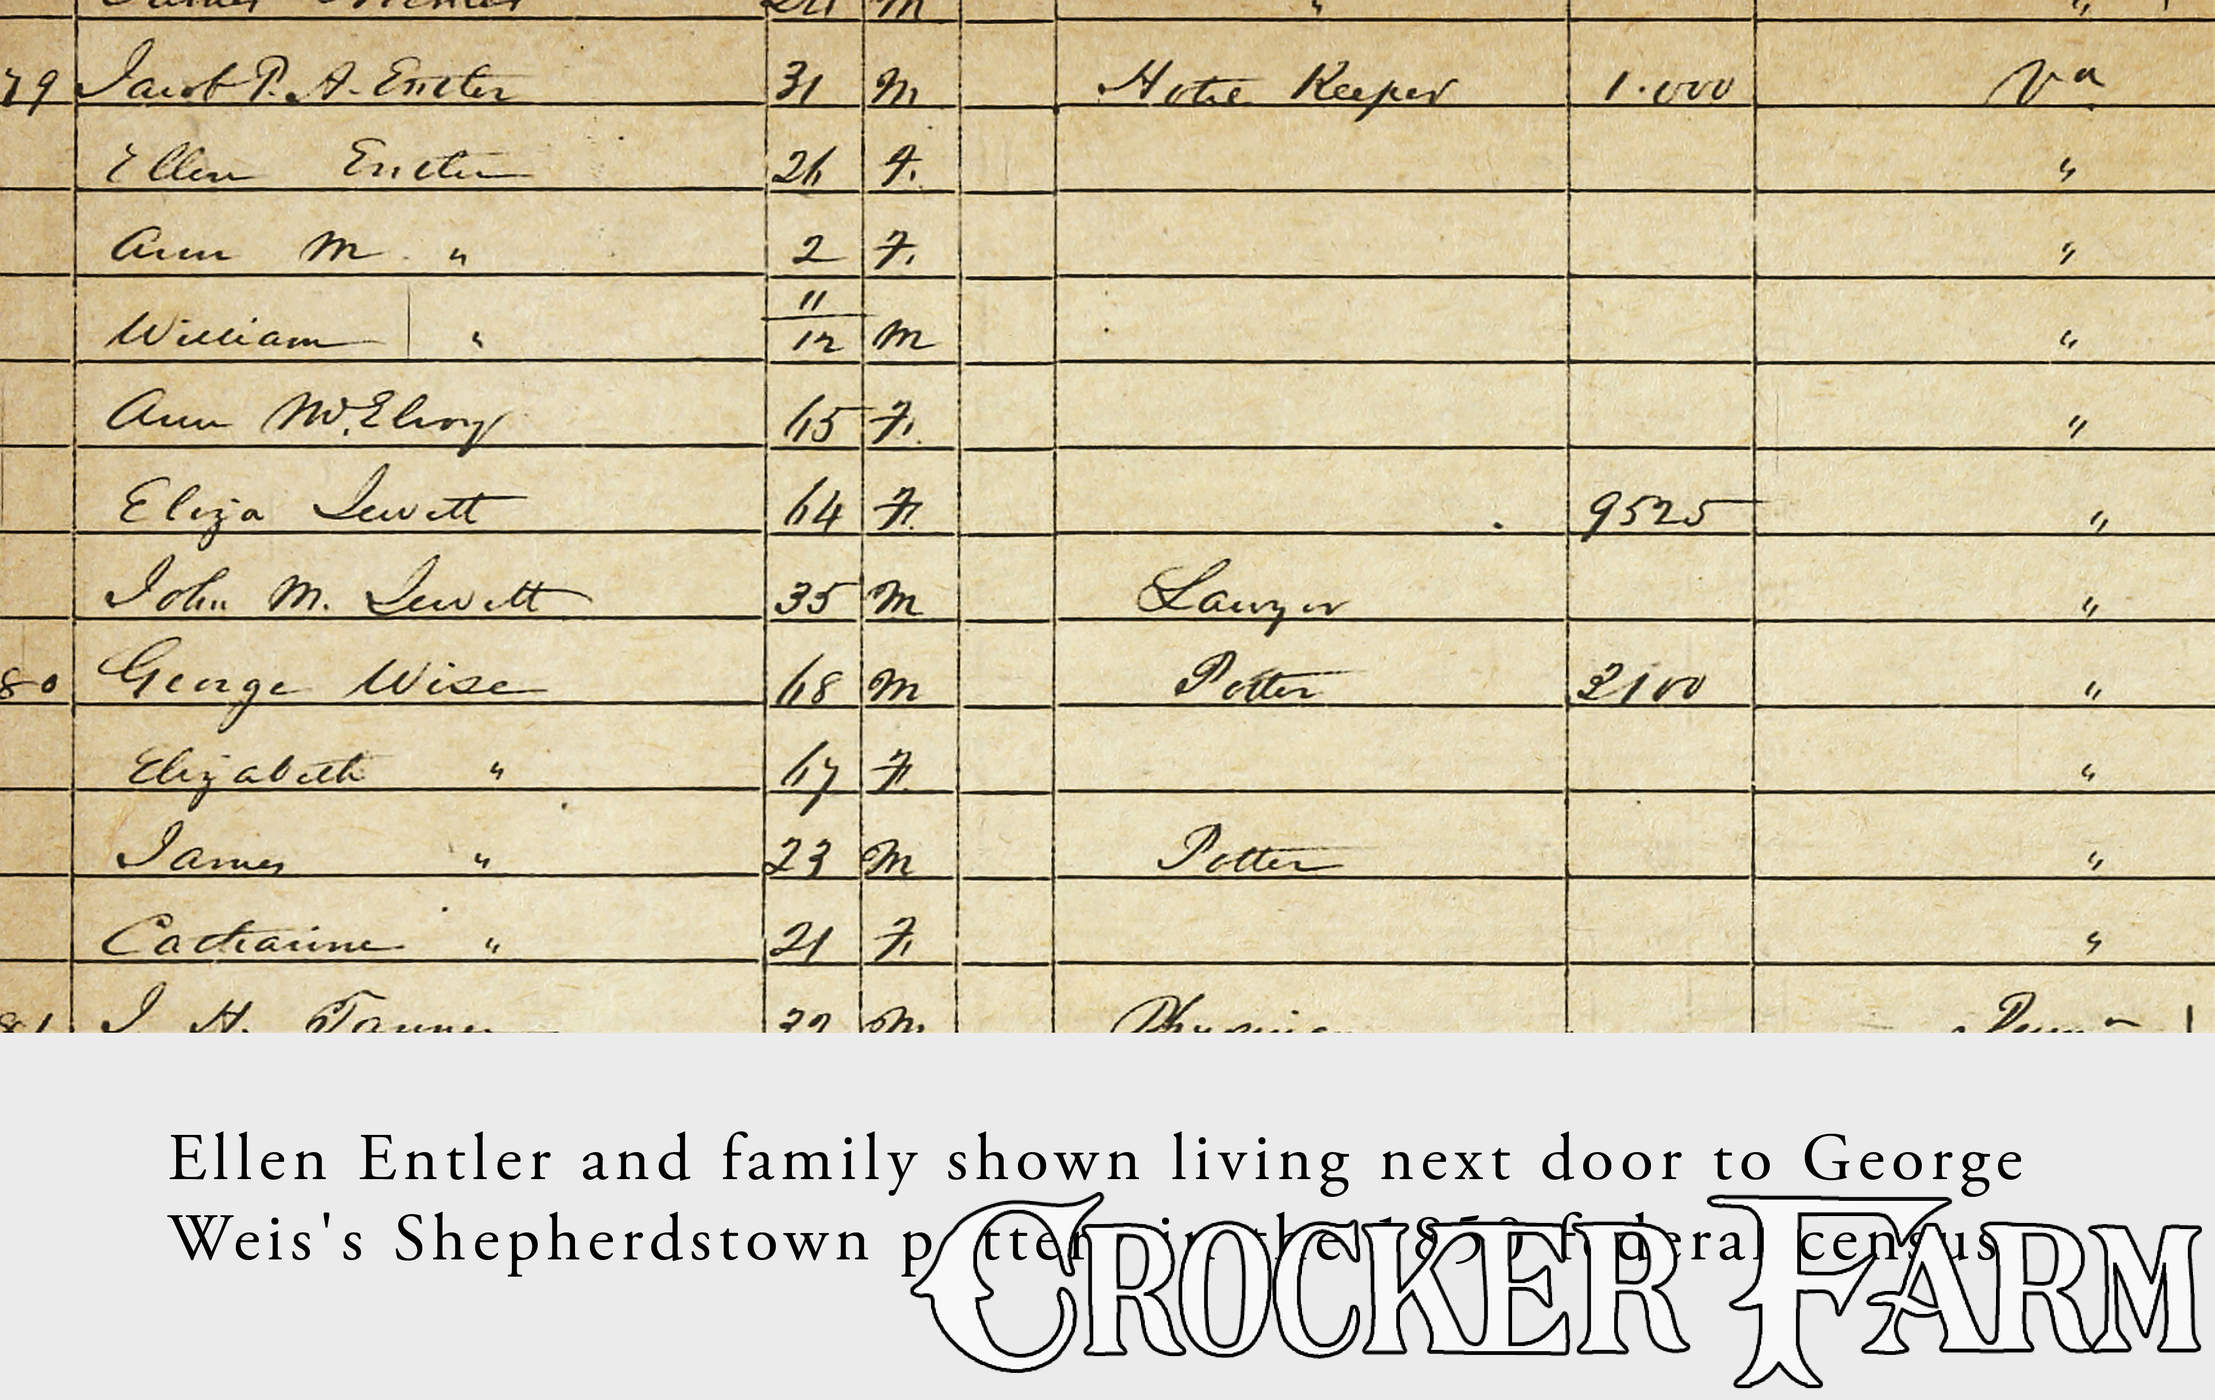 79 Jacob P. A. Entler 31 M Hotel Keeper 1.000 Va
Ellen Entler 26 F. "
Ann M " 2 F. "
William " 11/12 M "
Ann McElroy 65 F. "
Eliza Jewett 64 F. 9525 "
John M. Jewett 35 M Lawyer "
80 George Wise 68 M Potter 2100 "
Elizabeth " 67 F "
James " 23 M Potter "
Catharine " 21 F "
81 J. H. Tanner 32 M Physician
Ellen Entler and family shown living next door to George
Weis's Shepherdstown pottery in the 1850 federal census
CROCKER FARM